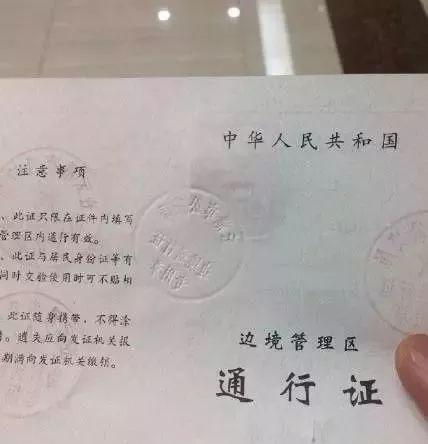 注意事项
、此证只限在证件内填写
管理区内通行有效。
、此证与居民身份证等有
同时交验使用时可不贴相
此证随身携带，不得涂
遗失应向发证机关报
期满向发证机关缴销。
中华人民共和国
边境管理区
通行证